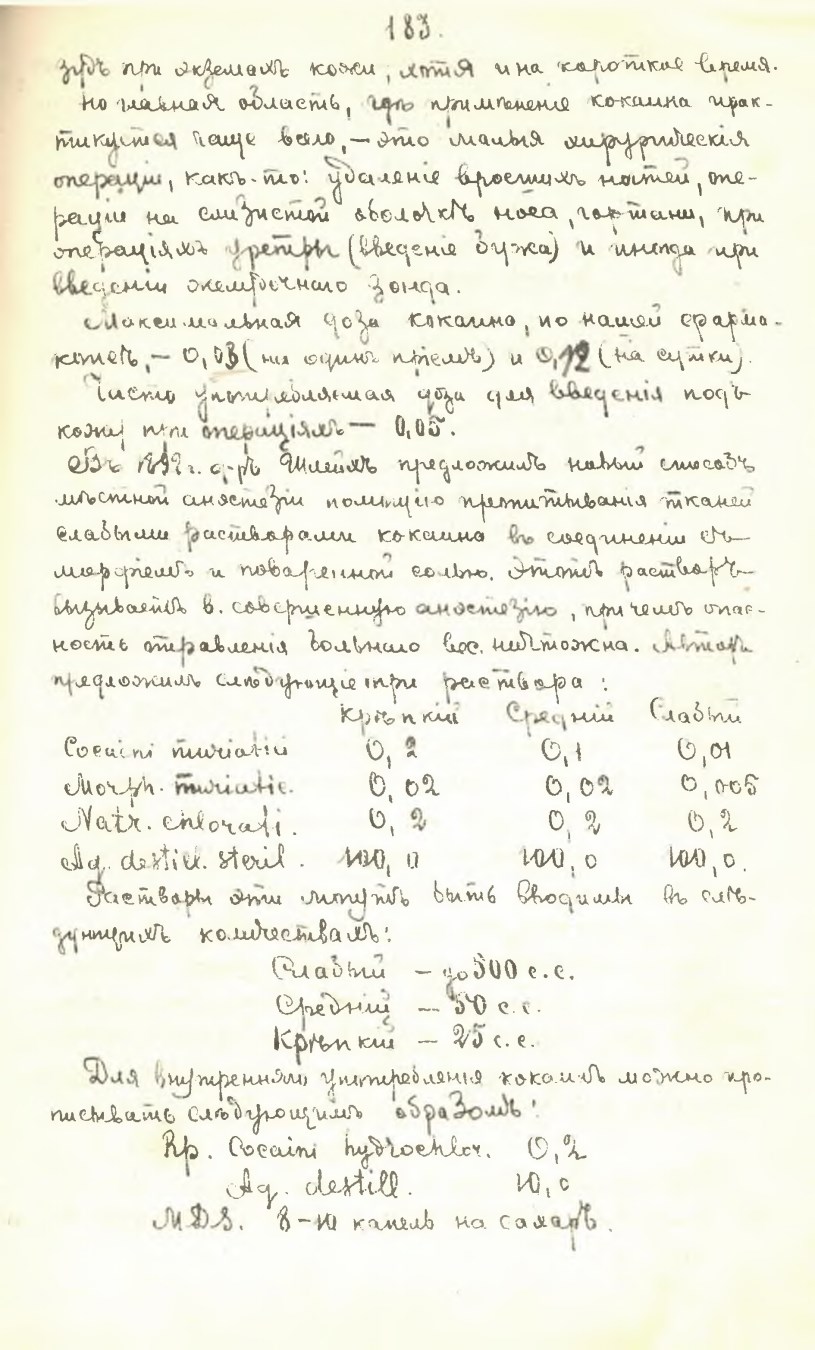 183.
зудъ при экземахъ кожи, хотя и на короткое время.
Но главная область, гдѣ примѣненіе кокаина прак-
тикуется чаще всего, — это малыя хирургическія
операціи, какъ-то: удаленіе вросшихъ ногтей, опе-
раціи на слизистой оболочкѣ носа, гортани, при
операціяхъ уретры (введеніе бужа) и иногда при
введеніи желудочнаго зонда.
Максимальная доза кокаина, по нашей фарма-
копеѣ, — 0,03 (на одинъ пріемъ) и 0,12 (на сутки).
Часто употребляемая доза для введенія подъ
кожу при операціяхъ — 0,05.
Въ 1892 г. д-ръ Шлейхъ предложилъ новый способъ
мѣстной анэстезіи помощію пропитыванія тканей
слабыми растворами кокаина въ соединеніи съ
морфіемъ и поваренной солью. Этотъ растворъ
вызываетъ в. совершенную анэстезію, при чемъ опас-
ность отравленія больного вос. ничтожна. Авторъ
предложилъ слѣдующіе три раствора:
Крѣпкій Средній Слабый
Cocaini muriatici 0,2 0,1 0,01
Morph. muriatic. 0,02 0,02 0,005
Natr. chlorati. 0,2 0,2 0,2
Aq. destill. steril. 100,0 100,0 100,0.
Растворы эти могутъ быть вводимы въ слѣ-
дующихъ количествахъ:
Слабый — до 500 c.c.
Средній — 50 c.c.
Крѣпкій — 25 c.c.
Для внутренняго употребленія кокаинъ можно про-
писывать слѣдующимъ образомъ:
Rp. Cocaini hydrochlor. 0,2
Aq. destill. 10,0
MDS. 8–10 капель на сахарѣ.